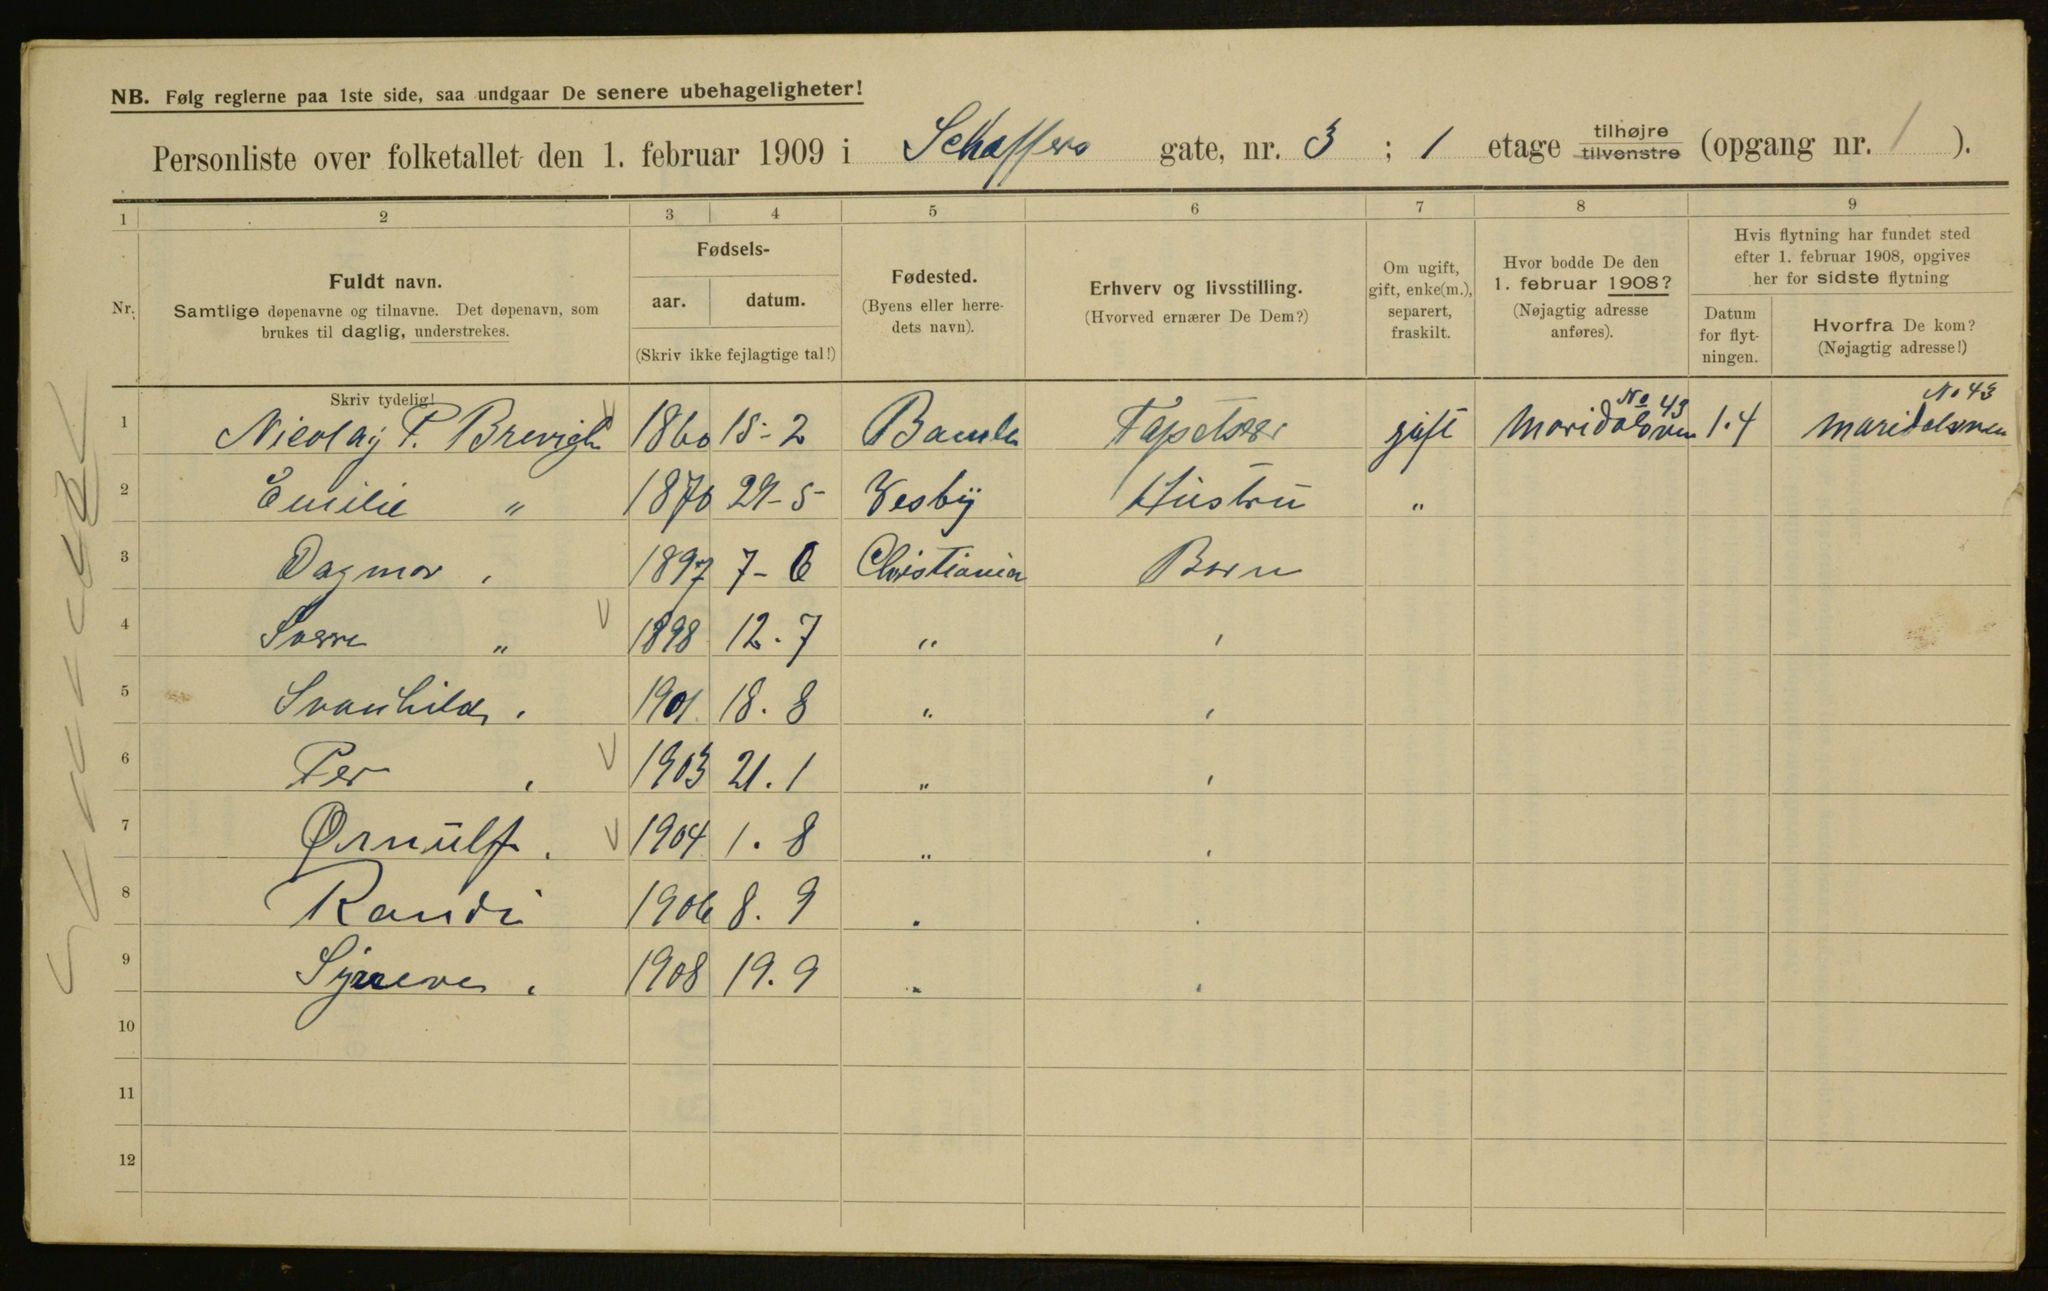 NB. Følg reglerne paa 1ste side, saa undgaar De senere ubehageligheter!
Personliste over folketallet den 1. februar 1909 i Schaffers gate, nr. 3 ; 1 etage tilhøjre tilvenstre (opgang nr. 1 ).
1 2 3 4 5 6 7 8 9
Nr. Fuldt navn. Samtlige døpenavne og tilnavne. Det døpenavn, som brukes til daglig, understrekes.
Fødsels- aar. datum. (Skriv ikke fejlagtige tal!)
Fødested. (Byens eller herredets navn).
Erhverv og livsstilling. (Hvorved ernærer De Dem?)
Om ugift, gift, enke(m.), separert, fraskilt.
Hvor bodde De den 1. februar 1908? (Nøjagtig adresse anføres).
Hvis flytning har fundet sted efter 1. februar 1908, opgives her for sidste flytning
Datum for flytningen. Hvorfra De kom? (Nøjagtig adresse!)
Skriv tydelig!
1 Nicolay P. Brevigh 1860 15-2 Bamle Tapetserer gift Maridalsven No 43 1.4 Maridalsven No 43
2 Emilie " 1870 29-5- Vesby Hustru "
3 Dagmar 1897 7-6 Christiania Barn
4 Sverre " 1898 12.7 "
5 Svanhild 1901 18.8 "
6 Per 1903 21.1 "
7 Ørnulf 1904 1.8 "
8 Randi 1906 8.9
9 Synneve 1908 19.9 "
10
11
12